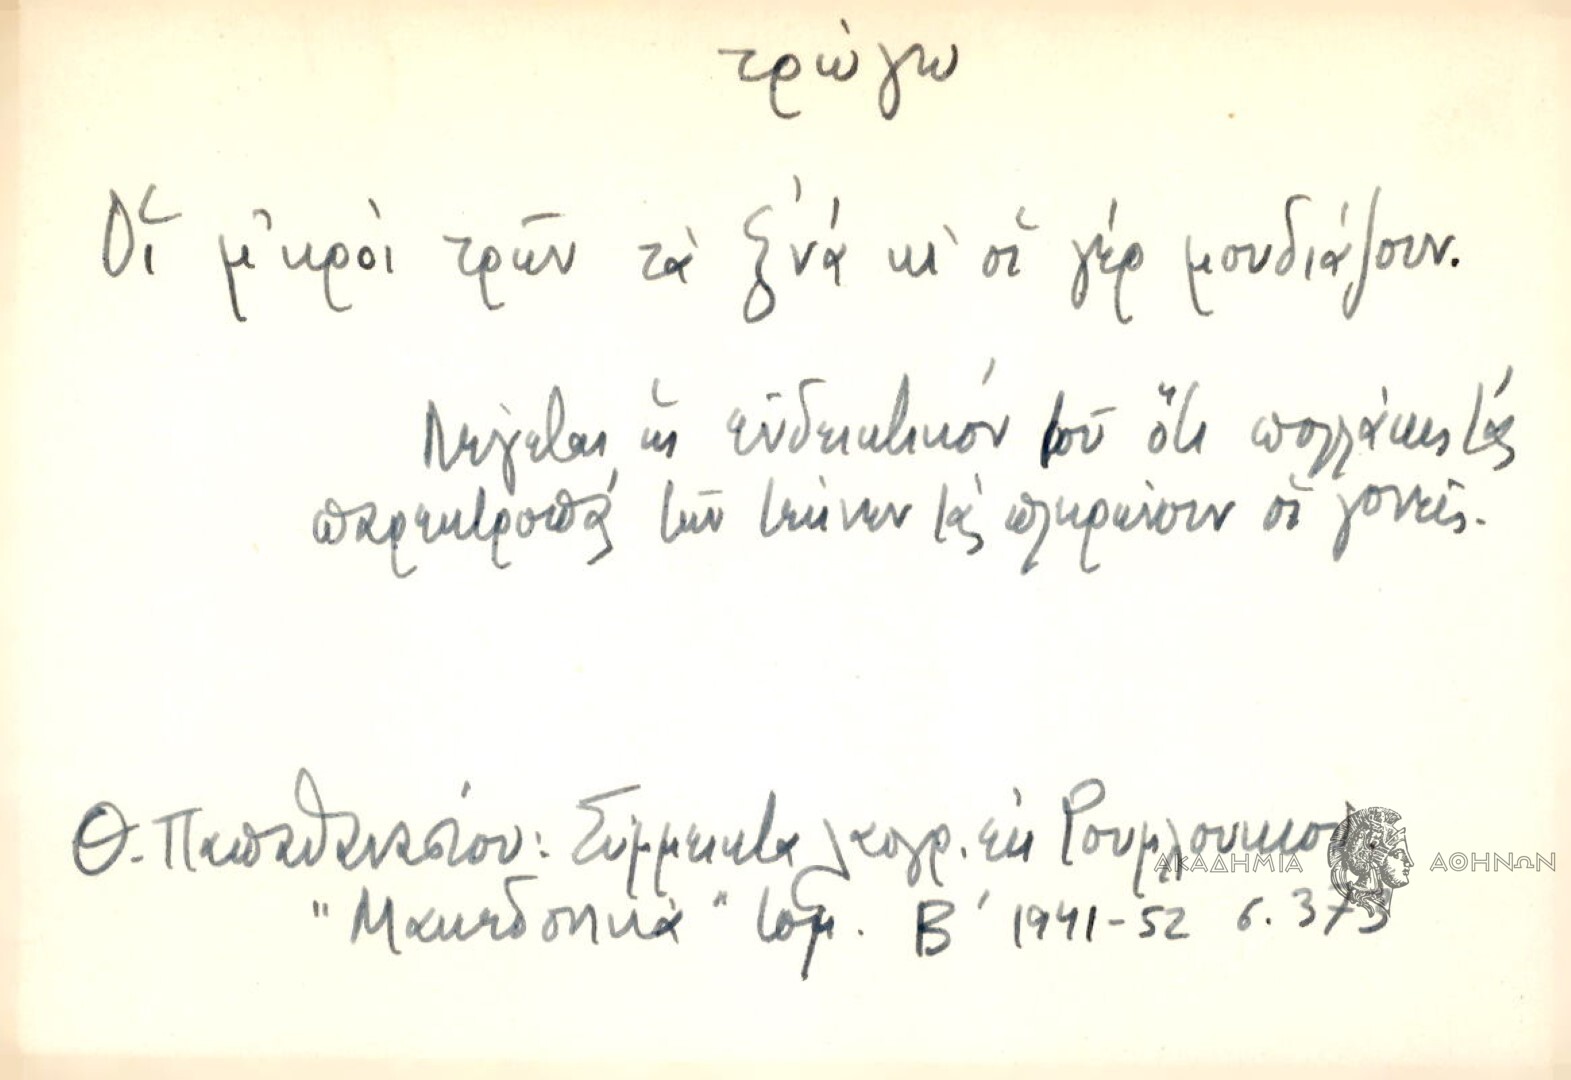 τρώγω
Οἱ μ'κροὶ τρῶν τὰ ξ'νά κι' οἱ γέρ μουδιάζουν.
Λέγεται ὡς ἐνδεικτικόν τοῦ ὅτι πολλάκις τάς
παρεκτροπάς τῶν τέκνων τάς πληρώνουν οἱ γονεῖς.
Θ. Παπαθανασίου: Σύμμεικτα λαογρ. ἐκ Ρουμλουκιου
"Μακεδονικά" τομ. Β' 1941-52 σ. 373
ΑΚΑΔΗΜΙΑ ΑΘΗΝΩΝ